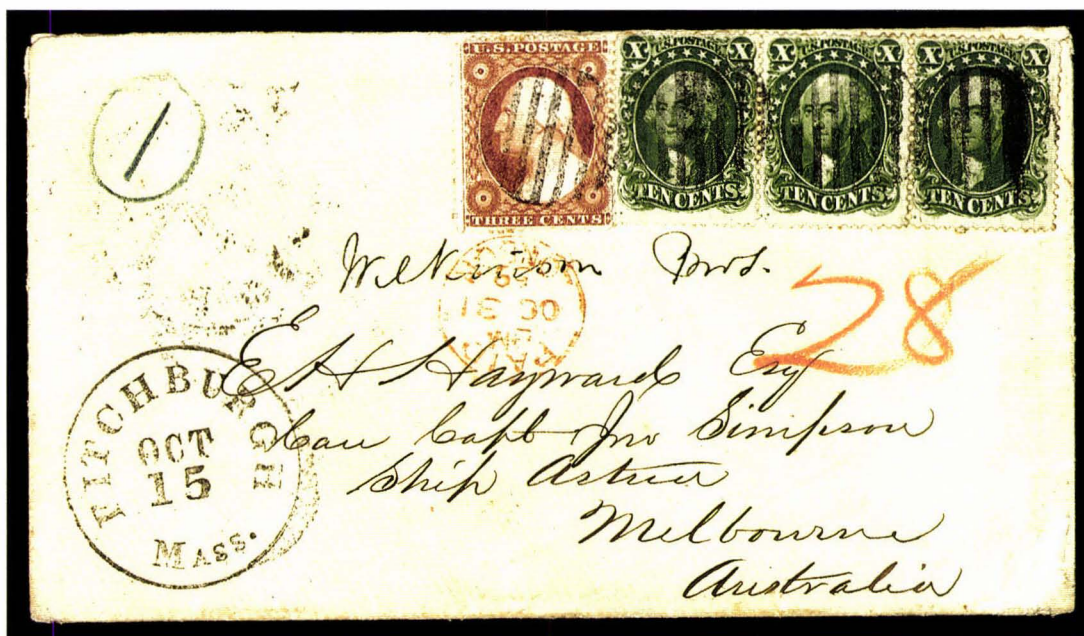 U.S. POSTAGE
THREE CENTS
X U.S. POSTAGE X
TEN CENTS
X U.S. POSTAGE X
TEN CENTS
X U.S. POSTAGE X
TEN CENTS
1
Wilkinson Bros.
28
PAID
OC 31
FITCHBURGH
OCT
15
MASS.
E H S Hayward Esq
Care Capt Jno Simpson
Ship
Melbourne
Australia